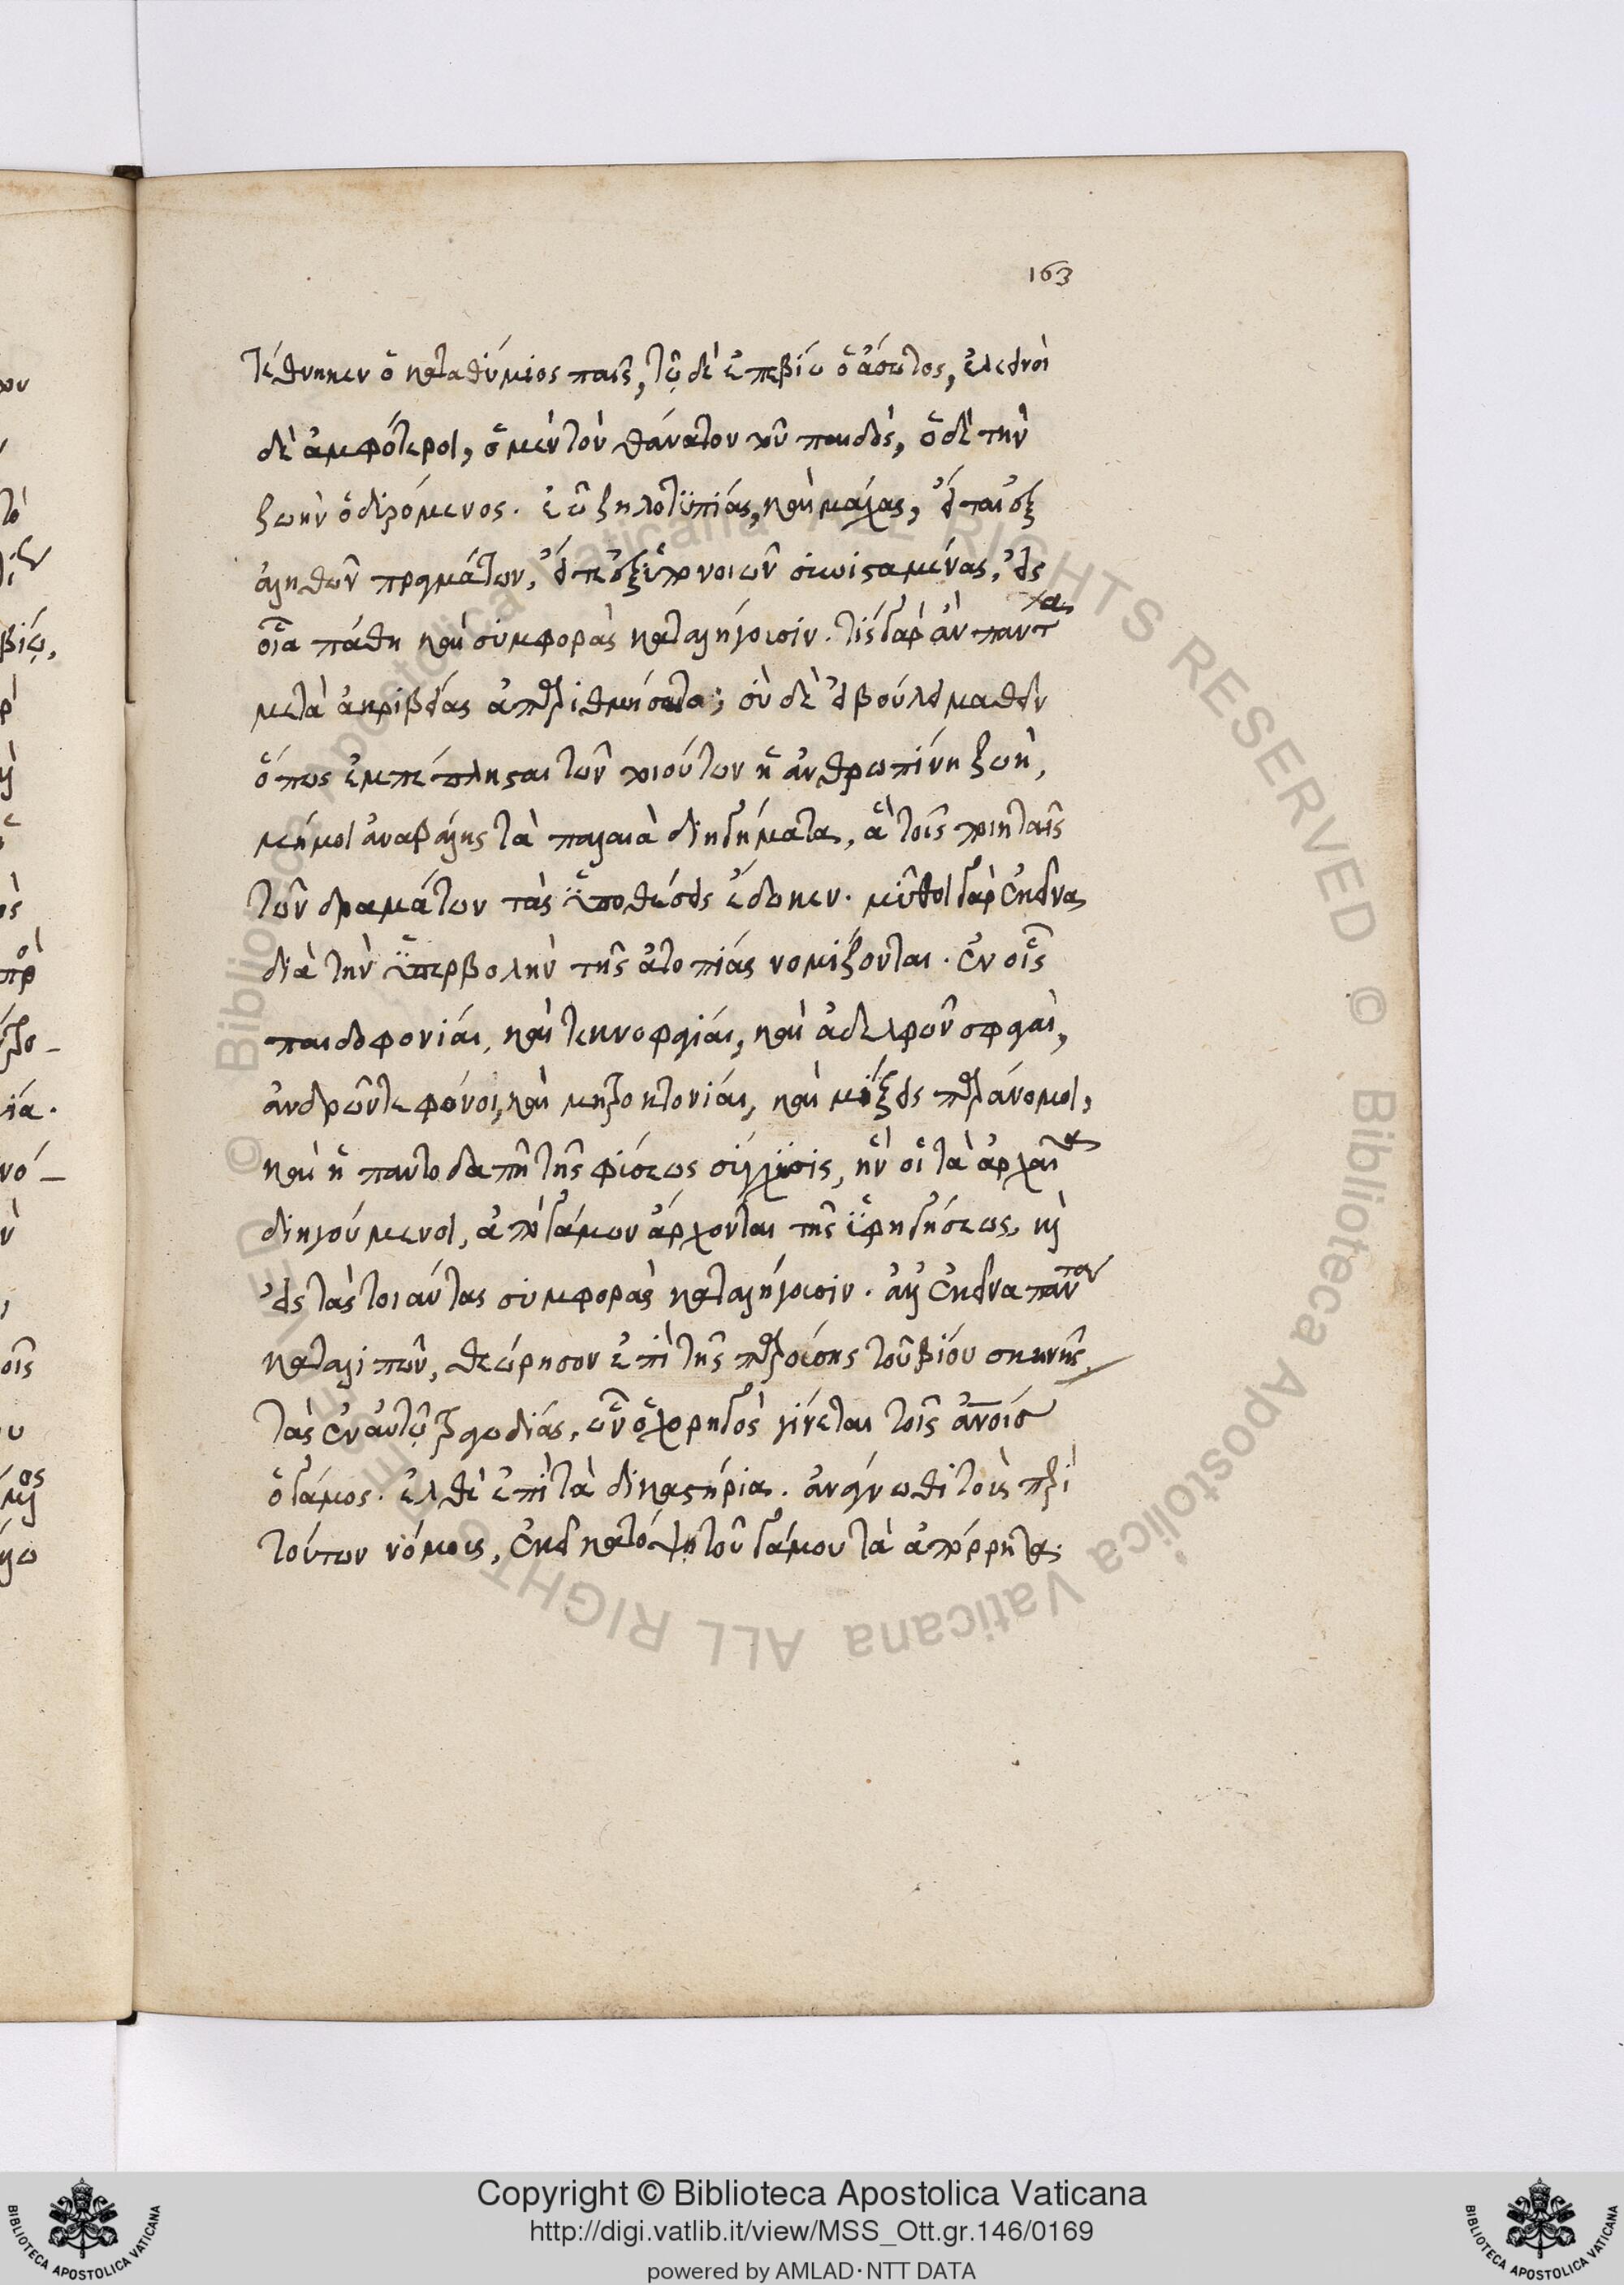 163
τέθνηκεν ὁ καταθύμιος παῖς, τῷ δὲ ἐπεβίω ὁ ἄσωτος, ἐλεεινοὶ
δὲ ἀμφότεροι, ὁ μὲν τὸν θάνατον τοῦ παιδὸς, ὁ δὲ τὴν
ζωὴν ὀδυρόμενος. ἐῶ ζηλοτυπίας, καὶ μάχας, εἴτε ἐξ
ἀληθῶν πραγμάτων, εἴτε ἐξ ὑπονοιῶν συνισταμένας, εἰς
οἷα πάθη καὶ συμφορὰς καταλήγουσιν. τίς γὰρ ἂν πάντα
μετὰ ἀκριβείας ἀπαριθμήσαιτο; σὺ δὲ εἰ βούλει μαθεῖν
ὅπως ἐμπέπλησται τῶν τοιούτων ἡ ἀνθρωπίνη ζωὴ,
μή μοι ἀναβάλῃς τὰ παλαιὰ διηγήματα, ἃ τοῖς ποιηταῖς
τῶν δραμάτων τὰς ὑποθέσεις ἔδωκεν. μῦθοι γὰρ ἐκεῖνα
διὰ τὴν ὑπερβολὴν τῆς ἀτοπίας νομίζονται. ἐν οἷς
παιδοφονίαι, καὶ τεκνοφαγίαι, καὶ ἀδελφῶν σφαγαὶ,
ἀνδρῶν τε φόνοι, καὶ μητροκτονίαι, καὶ μίξεις παράνομοι,
καὶ ἡ παντοδαπὴ τῆς φύσεως σύγχυσις, ἣν οἱ τὰ ἀρχαῖα
διηγούμενοι, ἀπὸ γάμων ἄρχονται τῆς ὑφηγήσεως, καὶ
εἰς τὰς τοιαύτας συμφορὰς καταλήγουσιν. ἀλλ' ἐκεῖνα πάντα
καταλιπὼν, θεώρησον ἐπὶ τῆς παρούσης τοῦ βίου σκηνῆς
τὰς ἐν αὐτῷ τραγῳδίας, ὧν ὁ χορηγὸς γίνεται τοῖς ἀνοις
ὁ γάμος. ἐλθὲ ἐπὶ τὰ δικαστήρια. ἀνάγνωθι τοὺς περὶ
τούτων νόμους, ἐκεῖ κατόψῃ τοῦ γάμου τὰ ἀπόρρητα.
Copyright © Biblioteca Apostolica Vaticana
http://digi.vatlib.it/view/MSS_Ott.gr.146/0169
powered by AMLAD·NTT DATA